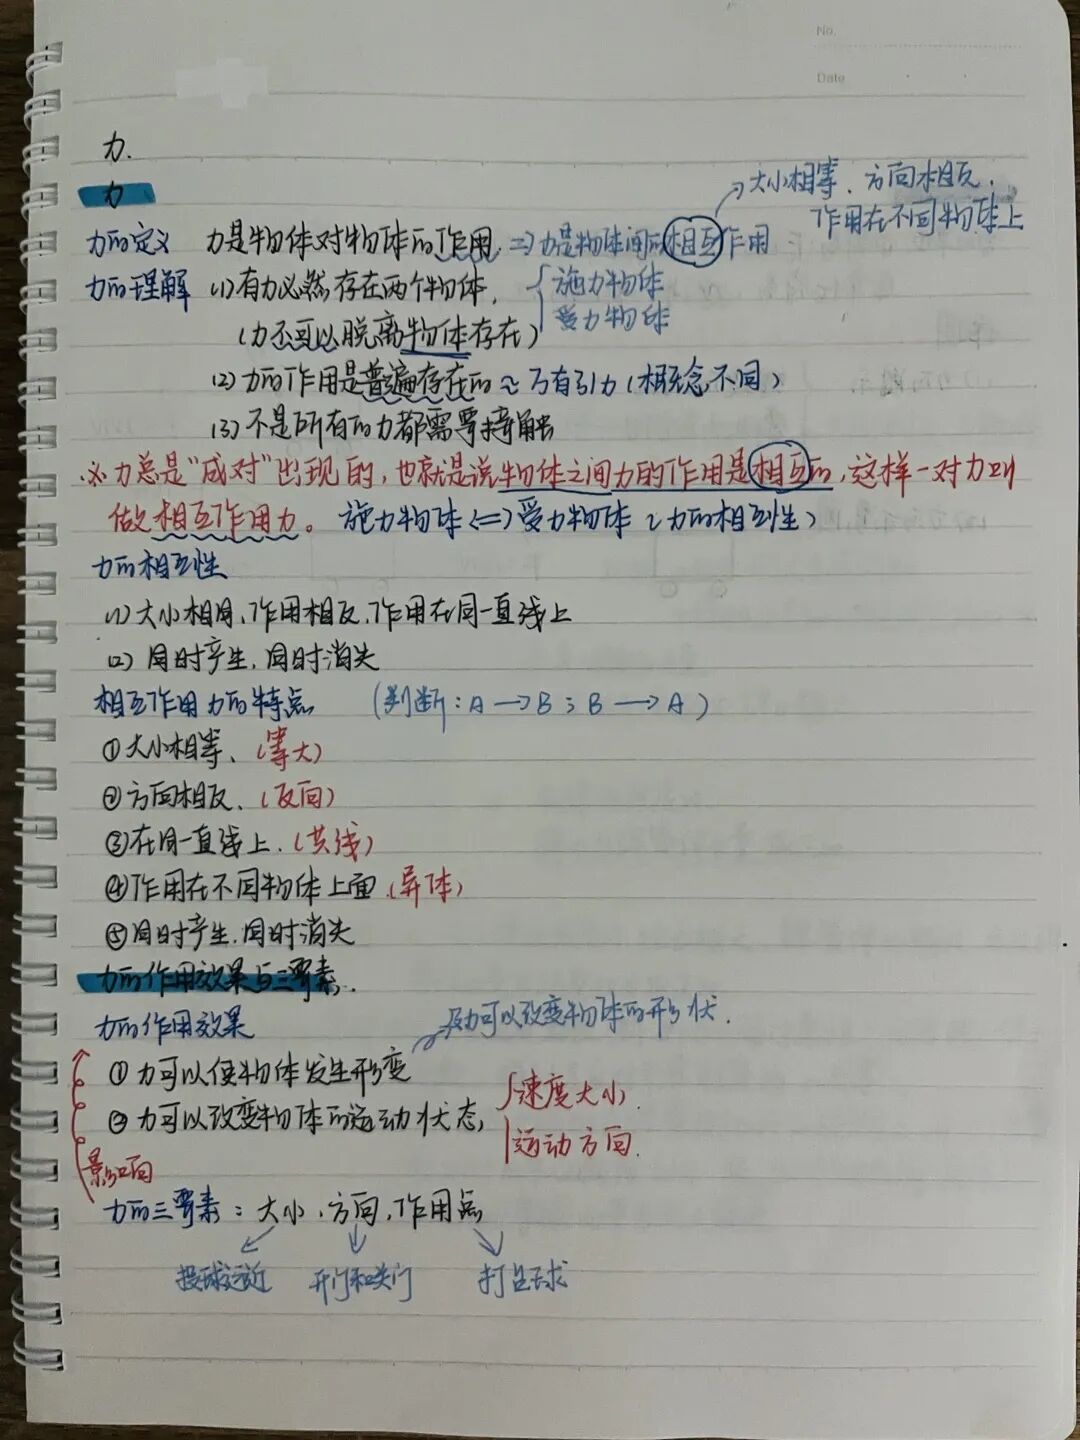 No.
Date
力.
力
大小相等、方向相反、
作用在不同物体上
力的定义 力是物体对物体的作用 => 力是物体间的相互作用
力的理解 (1)有力必然存在两个物体, 施力物体
受力物体
(力不可以脱离物体存在)
(2)力的作用是普遍存在的 ≈ 万有引力(概念不同)
(3)不是所有的力都需要接触
力总是"成对"出现的,也就是说物体之间力的作用是相互的,这样一对力叫
做相互作用力。 施力物体<=>受力物体(力的相互性)
力的相互性
(1)大小相同,作用相反,作用在同一直线上
(2)同时产生,同时消失
相互作用力的特点 (判断:A→B;B→A)
①大小相等、(等大)
②方向相反、(反向)
③在同一直线上.(共线)
④作用在不同物体上面(异体)
⑤同时产生.同时消失
力的作用效果与三要素.
力的作用效果 及力可以改变物体的形状.
①力可以使物体发生形变
②力可以改变物体的运动状态, 速度大小.
运动方向.
影响
力的三要素:大小、方向,作用点
投球远近 开门和关门 打乒球